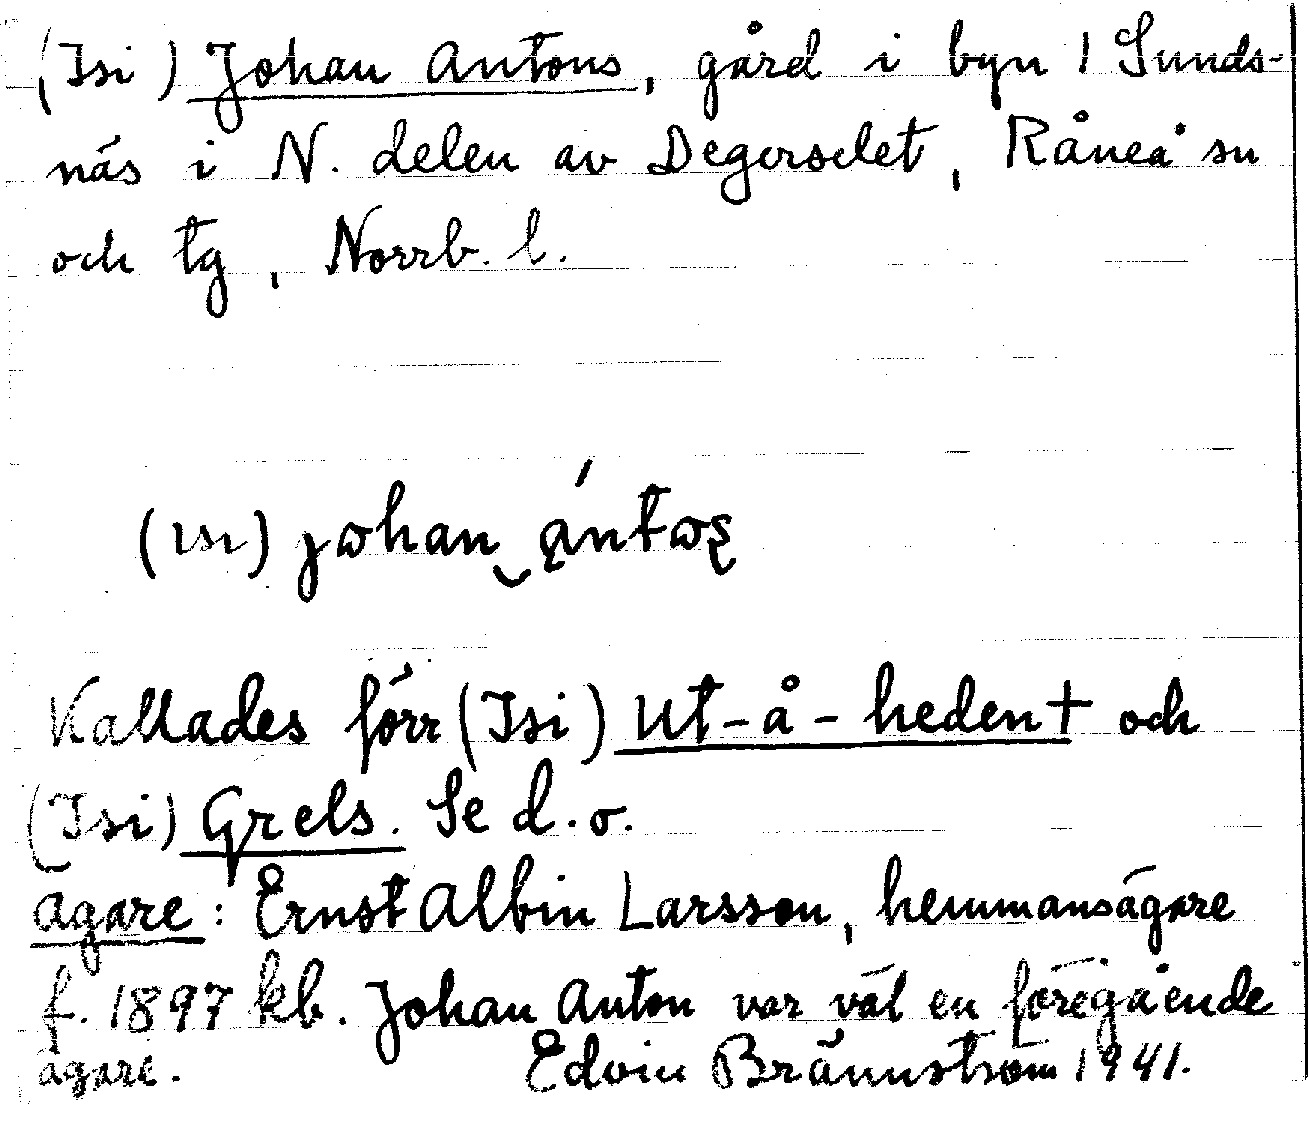 (Isi) Johan Antons, gård i byn 1 Sunds-
näs i N. delen av Degerselet, Råneå sn
och tg, Norrb. l.
(ɪsɪ) johan‿ántɷs
Kallades förr (Isi) Ut-å-heden† och
(Isi) Grels. Se d.o.
ägare: Ernst Albin Larsson, hemmansägare
f. 1897 kb. Johan Anton var väl en föregående
ägare. Edvin Brännström 1941.